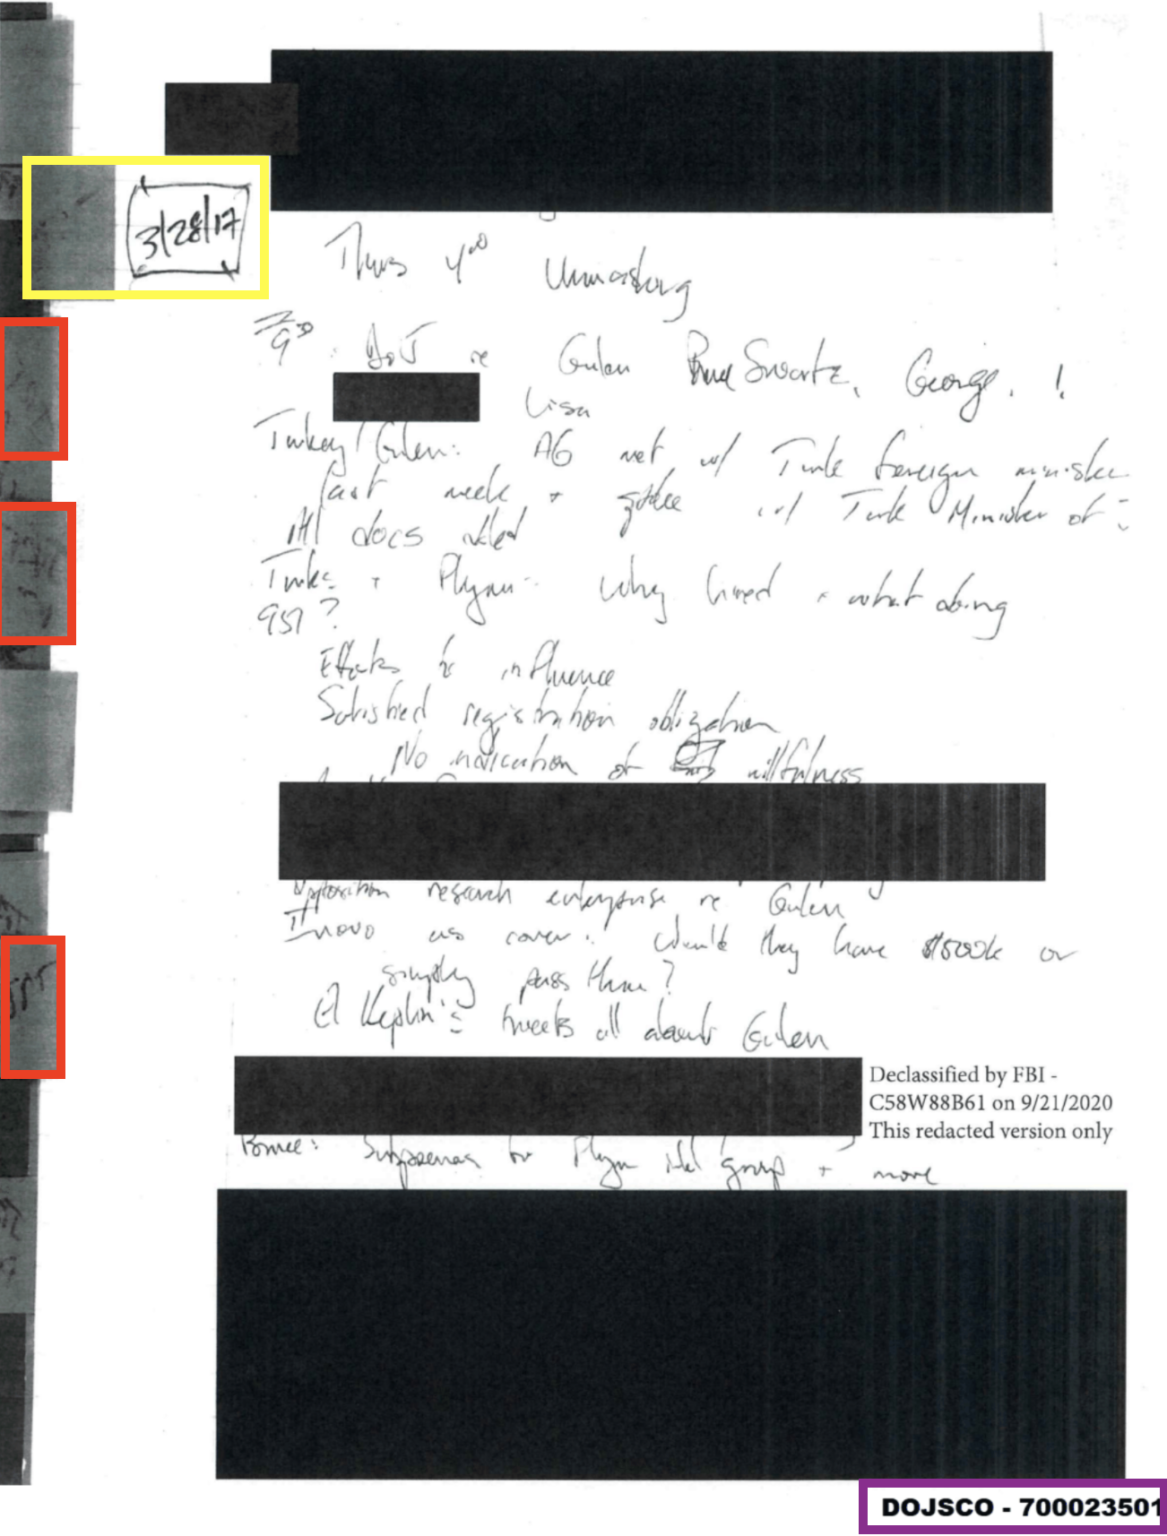 3/28/17
Thurs 4:00 Unmasking
9:30 DOJ re Gulen Bruce Swartz, George, !
Lisa
Turkey/Gulen: AG met w/ Turk foreign minister
last week + w/ Turk Minister of
All docs
Turks + Flynn: Why hired + what doing
951?
Efforts to influence
Satisfied registration obligation
No indication of willfulness
Opposition research enterprise re Gulen
Inovo as cover: Would they have $500k or
simply pass thru?
Ekim Alptekin's tweets all about Gulen
Declassified by FBI -
C58W88B61 on 9/21/2020
This redacted version only
Bruce: Subpoenas for Flynn Intel group + more
DOJSCO - 700023501